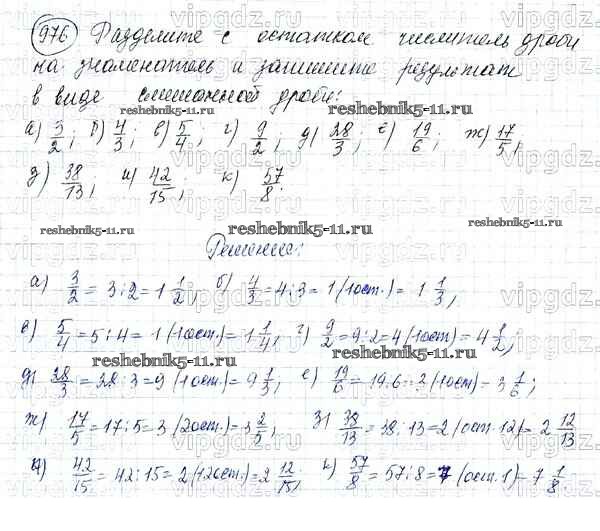 976 Разделите с остатком числитель дроби
на знаменатель и запишите результат
в виде смешанной дроби:
reshebnik5-11.ru
а) 3/2; б) 4/3; в) 5/4; г) 9/2; д) 28/3; е) 19/6; ж) 17/5;
з) 38/13; и) 42/15; к) 57/8.
reshebnik5-11.ru reshebnik5-11.ru
Решение:
а) 3/2 = 3:2 = 1 1/2; б) 4/3 = 4:3 = 1 (1ост.) = 1 1/3;
в) 5/4 = 5:4 = 1 (1ост.) = 1 1/4; г) 9/2 = 9:2 = 4 (1ост) = 4 1/2;
reshebnik5-11.ru
д) 28/3 = 28:3 = 9 (1ост.) = 9 1/3; е) 19/6 = 19:6 = 3 (1ост) = 3 1/6;
ж) 17/5 = 17:5 = 3 (2ост) = 3 2/5; з) 38/13 = 38:13 = 2 (ост 12) = 2 12/13
и) 42/15 = 42:15 = 2 (12ост.) = 2 12/15; к) 57/8 = 57:8 = 7 (ост. 1) = 7 1/8
vipgdz.com